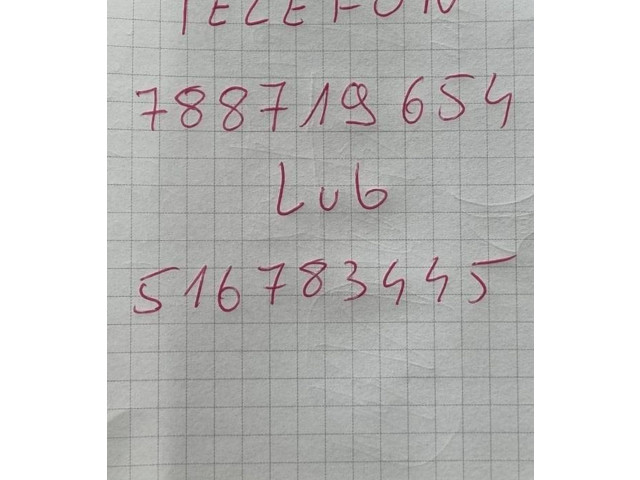 TELEFON
788719 654
Lub
516783445